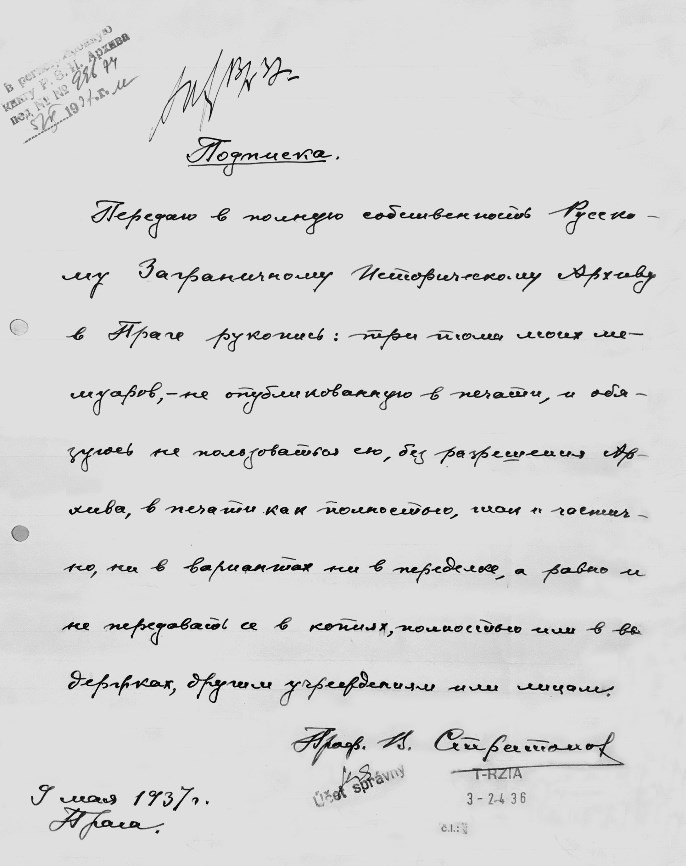 В регистрационную
книгу Р. З. И. Архива
под № № 236 74
1937 г.
Подписка.
Передаю в полную собственность Русско-
му Заграничному Историческому Архиву
в Праге рукопись: три тома моих ме-
муаров,-не опубликованную в печати, и обя-
зуюсь не пользоваться ею, без разрешения Ар-
хива, в печати как полностью, так и частич-
но, ни в вариантах ни в переделке, а равно и
не передавать ее в копиях, полностью или в вы
держках, другим учреждениям или лицам.
Проф. В. Стратонов
Účet správny
T-RZIA
3-2436
č.l.:
9 мая 1937г.
Прага.